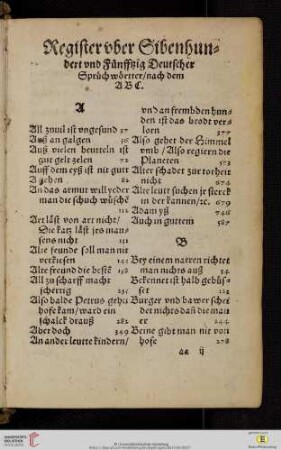 Register vber Sibenhun-
dert vnd Fünfftzig Deutscher
Sprüchwörter/nach dem
ABC.
A
All zuuil ist vngesund 37
Auß an galgen 36
Auß vielen beuteln ist
gut gelt zelen 72
Auff dem eyß ist nit gut
gehen 82
An das armut will yeder
man die schuch wüschē
112
Art läßt von art nicht/
Die katz läßt jrs mau-
sens nicht 131
Alte freunde soll man nit
verkiesen 141
Alte freund die bestē 158
All zu scharff macht
schertig 235
Also balde Petrus gehn
hofe kam/ward ein
schalck drauß 282
Aber doch 349
An ander leutte kindern/
vnd an frembden hun-
den ist das brodt ver-
loren 377
Also gehet der Himmel
vmb/Also regiern die
Planeten 573
Alter schadet zur torheit
nicht 674
Alte leut suchen jr sterck
in der kannen/rc. 679
Adam yß 746
Auch in guttem 587
B
Bey einem narren richtet
man nichts auß 34
Bekennet ist halb gebüs-
set
Burger vnd bawer schei
det nichts dañ die mau
er 244
Beine gibt man nit von
hofe 278
aa ij